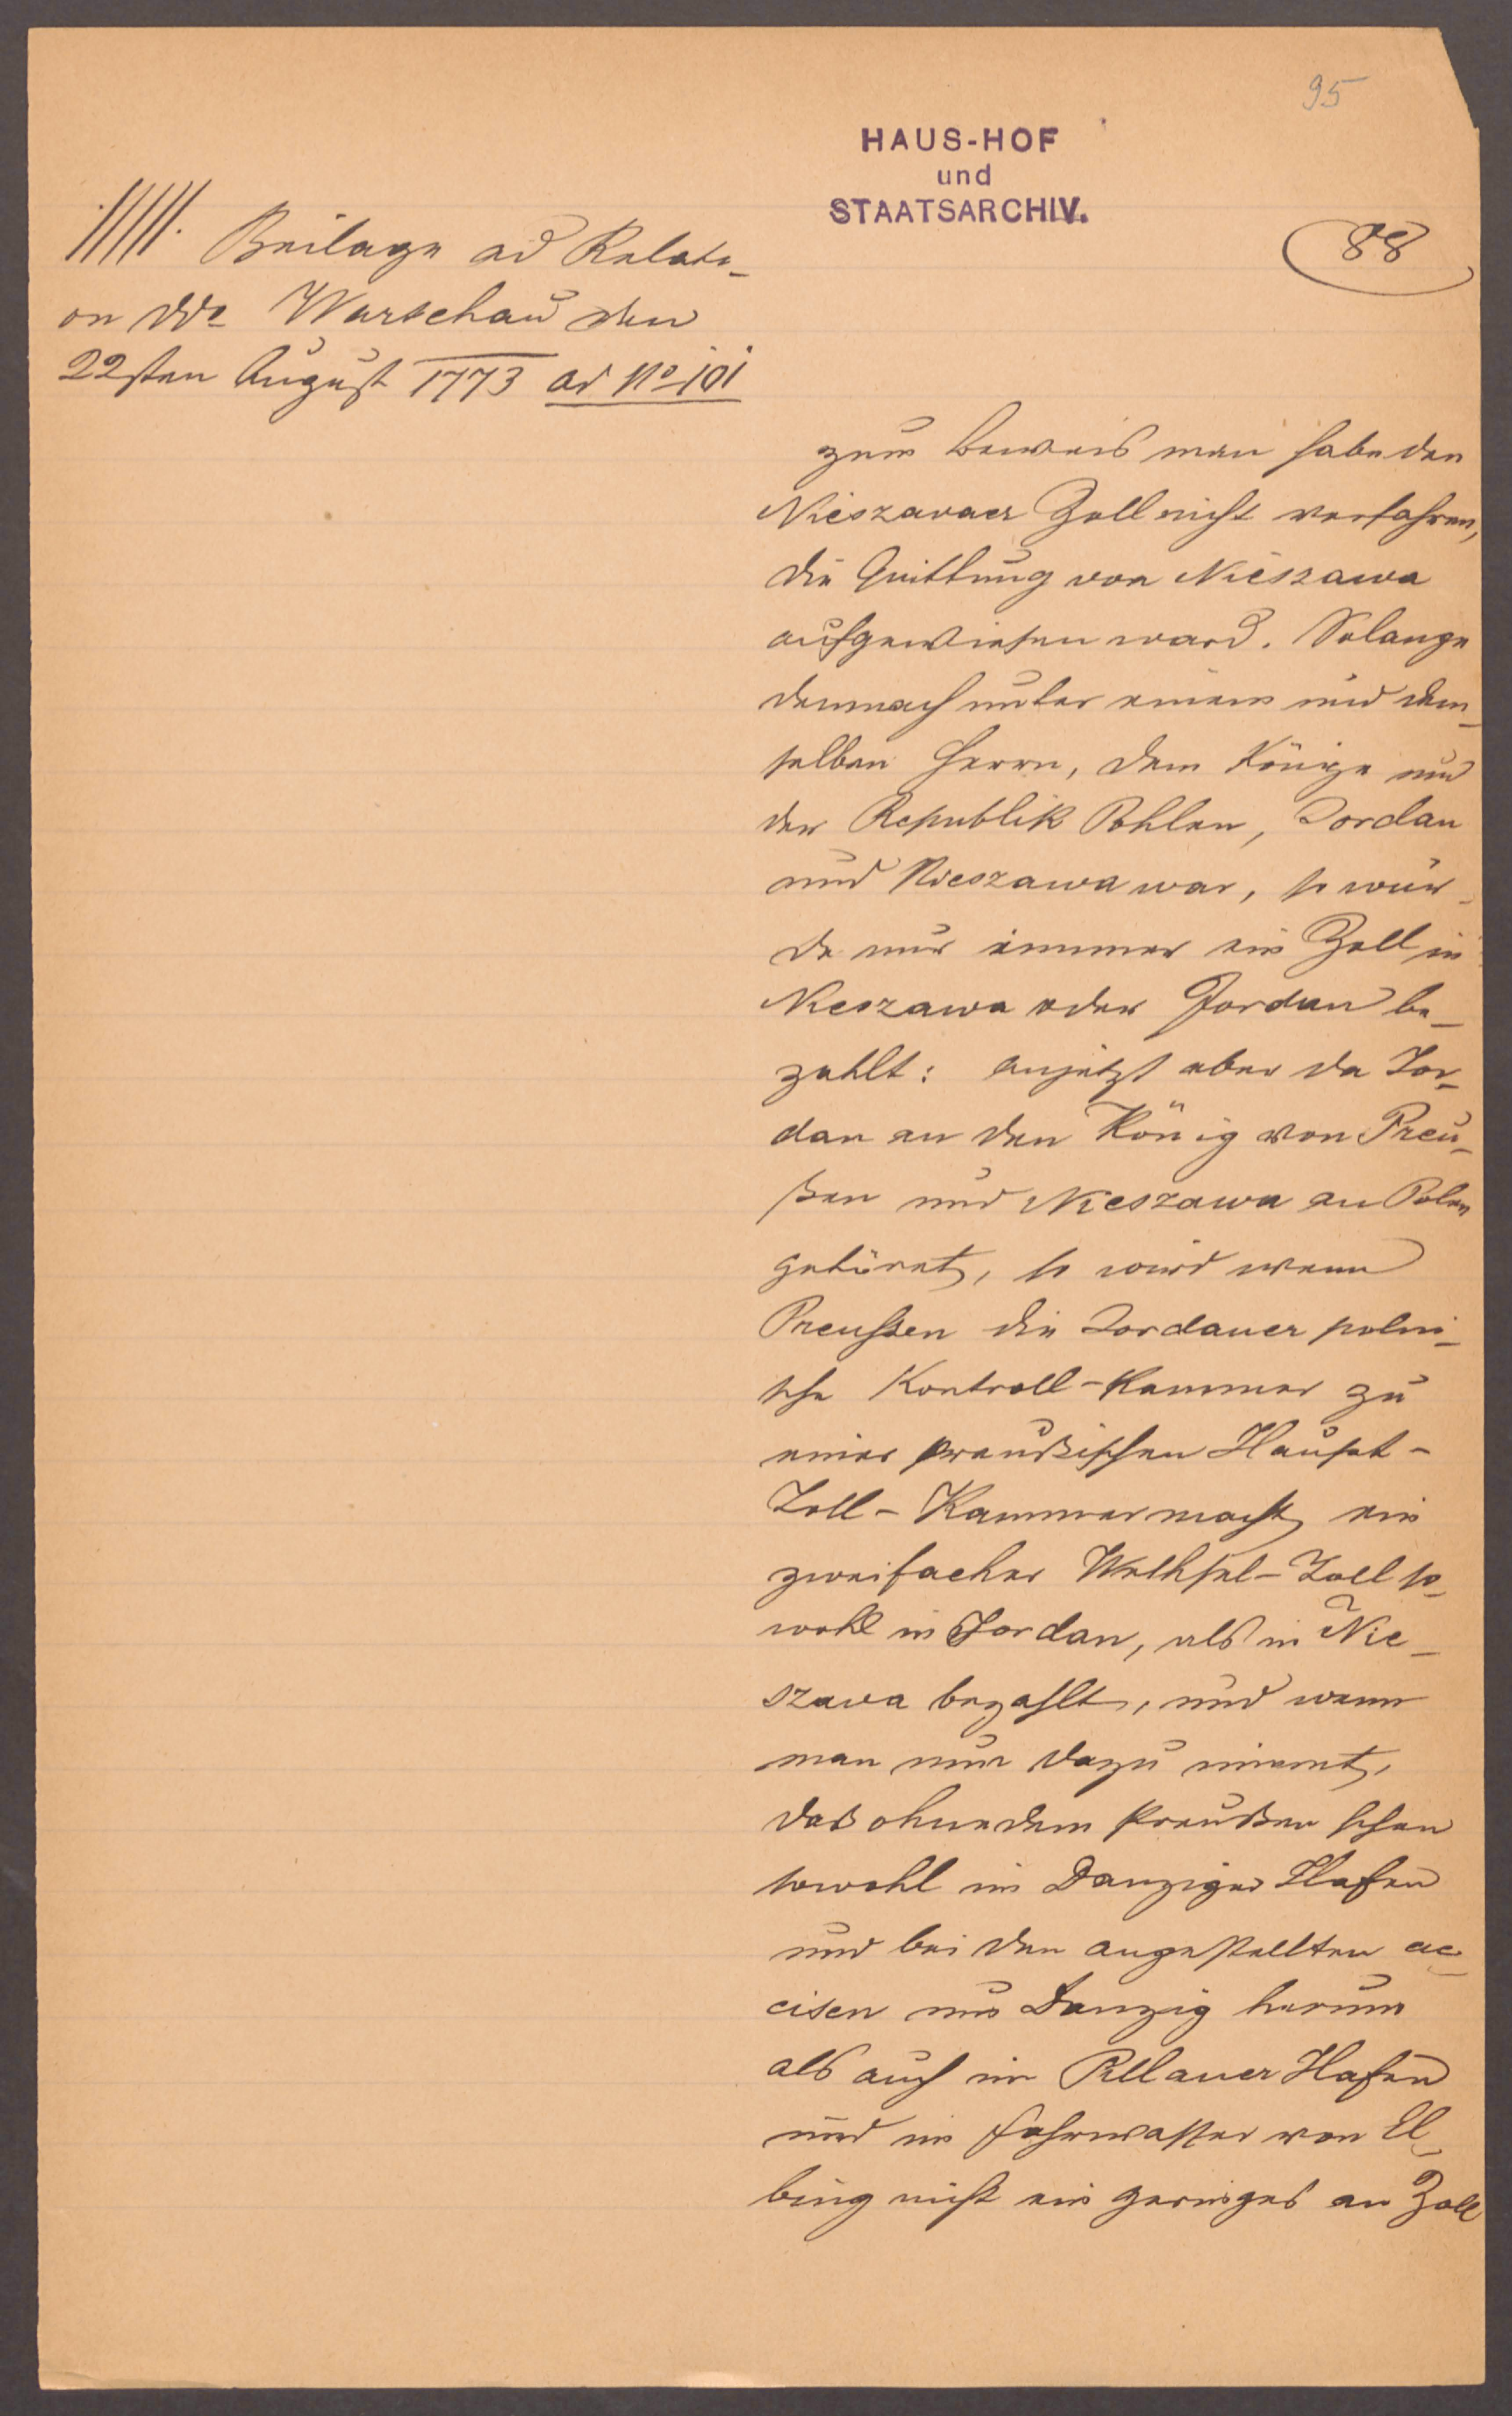 95
HAUS-HOF
und
STAATSARCHIV.
88
Beilage ad Relati-
on dd° Warschau den
22sten August 1773 ad N° 101
zum Beweis man habe den
Nieszavaer Zoll nicht verfahren,
die Quittung von Nieszawa
aufgewiesen ward. Solange
demnach unter einem und dem-
selben Herrn, dem Könige und
der Republik Pohlen, Jordan
und Nieszawa war, so wur-
de nur immer ein Zoll in
Nieszawa oder Jordan be-
zahlt: anjetzt aber da Jor-
dan an den König von Preu-
ßen und Nieszawa an Polen
gehöret, so wird wenn
Preussen die Jordaner polni-
sche Kontroll-Kammer zu
einer preußischen Haupt-
Zoll-Kammer macht, ein
zweifacher Weichsel-Zoll so-
wohl in Jordan, als in Nie-
szava bezahlt, und wenn
man nun dazu nimmt,
daß ohnedem Preußen schon
sowohl im Danziger Hafen
und bei den angestellten ac-
cisen um Danzig herum
als auch im Pillauer Hafen
und im Fahrwasser von El-
bing nicht ein geringes an Zoll